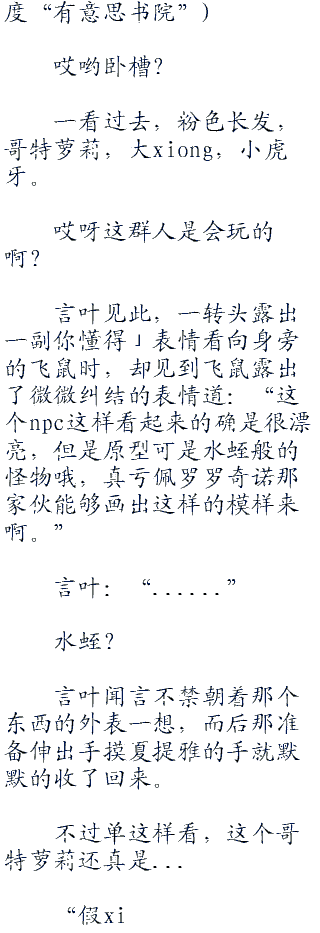 度“有意思书院”)
哎哟卧槽?
一看过去，粉色长发，
哥特萝莉，大xiong，小虎
牙。
哎呀这群人是会玩的
啊?
言叶见此，一转头露出
一副你懂得」表情看向身旁
的飞鼠时，却见到飞鼠露出
了微微纠结的表情道：“这
个npc这样看起来的确是很漂
亮，但是原型可是水蛭般的
怪物哦，真亏佩罗罗奇诺那
家伙能够画出这样的模样来
啊。”
言叶：“......”
水蛭?
言叶闻言不禁朝着那个
东西的外表一想，而后那准
备伸出手摸夏提雅的手就默
默的收了回来。
不过单这样看，这个哥
特萝莉还真是...
“假xi